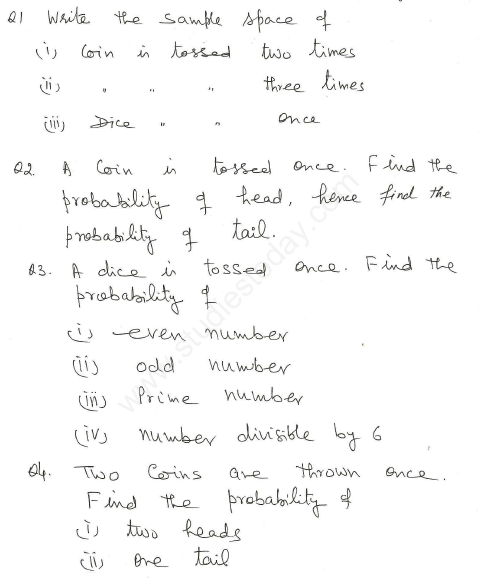 Q1 Write the sample space of
(i) Coin is tossed two times
(ii) " " " three times
(iii) Dice " " once
Q2. A Coin is tossed once. Find the
probability of head, hence find the
probability of tail.
Q3. A dice is tossed once. Find the
probability of
(i) even number
(ii) odd number
(iii) Prime number
(iv) number divisible by 6
Q4. Two Coins are thrown once.
Find the probability of
(i) two heads
(ii) one tail
www.studiestoday.com